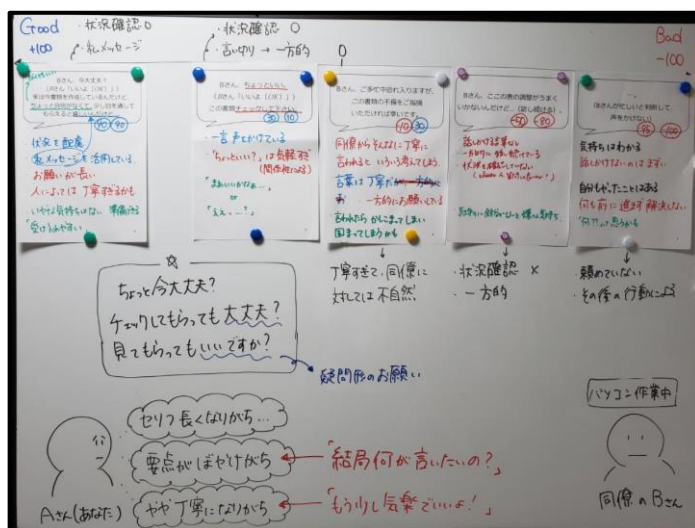 Good
+100
・状況確認 ○
・私メッセージ
・状況確認 ○
・言い切り → 一方的
Bad
-100
Bさん、今大丈夫？
(Bさん「いいよ(OK)」)
実は今書類を作成しているんだけど、
ちょっと自信がなくて、少し目を通して
もらえると嬉しいんだけど
90
90
・状況を配慮
私メッセージを活用している
お願いが長い
人によっては丁寧すぎるかも
いやな気持ちはない 準備できる
「受け入れやすい
Bさん、ちょっといい？
(Bさん「いいよ(OK)」)
この書類チェックして下さい。
30
10
一言声をかけている
「ちょっといい？」は気軽すぎ
(関係性による)
「まあいいかなぁ…」
or
「ええ…！」
Bさん、ご多忙中恐れ入りますが、
この書類の不備をご指摘
いただければ幸いです。
-10
30
同僚からそんなに丁寧に
言われると いろいろ考えてしまう
言葉は丁寧だが
一方的にお願いしている
言われたら かしこまってしまい
困まってしまうかも
Bさん、ここの表の調整がうまく
いかないんだけど、(話し続ける)。
-50
-80
話しかける言葉なし
一方的に話し続けている
(Bさんが忙しいと判断して、
声をかけない)
-95
-100
気持ちはわかる
話しかけないのはまずい
自分もやったことはある
何も前に進まず 解決しない
「何!?」って思うかも
丁寧すぎて、同僚に
対しては不自然
・状況確認 ×
・一方的
・頼めていない
・その後の行動による
ちょっと今大丈夫？
チェックしてもらっても大丈夫？
見てもらってもいいですか？
疑問形のお願い
セリフ長くなりがち…
要点がぼやけがち
やや丁寧になりがち
「結局何が言いたいの？」
「もう少し気楽でいいよ！」
Aさん(あなた)
パソコン作業中
同僚のBさん